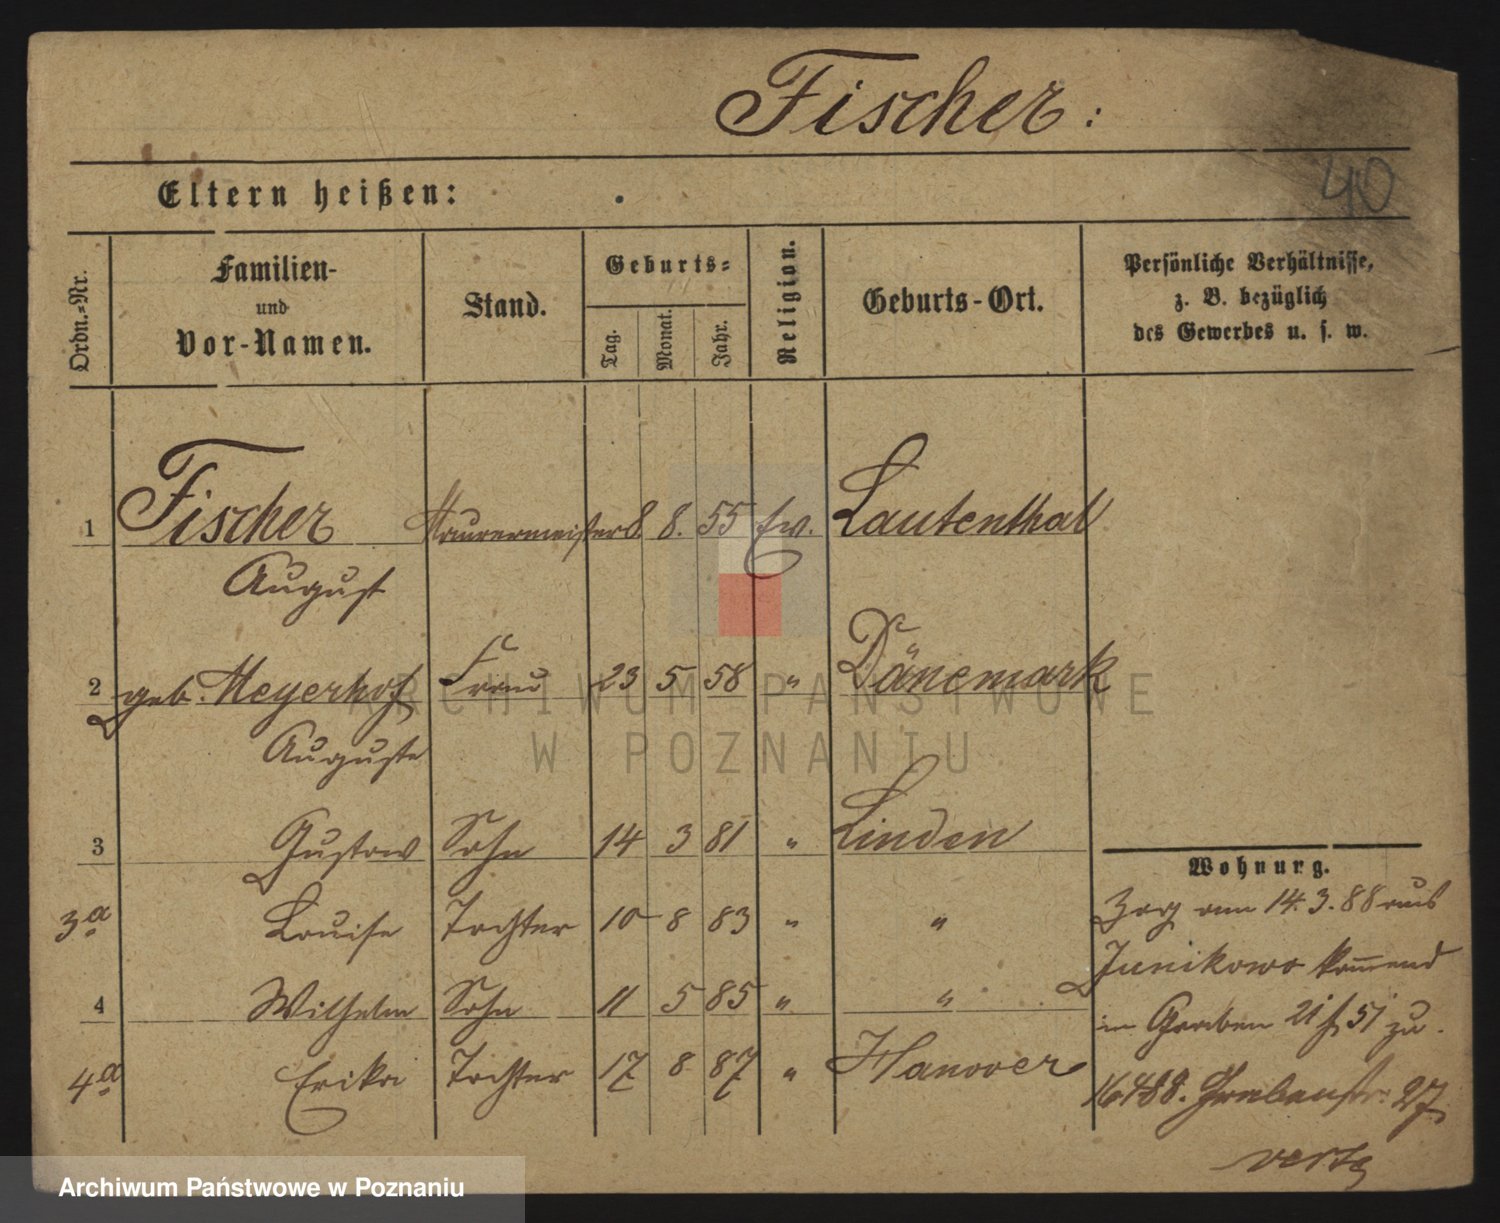 Fischer:
40
Eltern heißen:
Ordn.=Nr.
Familien-
und
Vor-Namen.
Stand.
Geburts=
Tag.
Monat.
Jahr.
Religion.
Geburts-Ort.
Persönliche Verhältnisse,
z. B. bezüglich
des Gewerbes u. s. w.
1 Fischer Maurermeister 8. 8. 55 Ev. Lautenthal
August
2 geb. Meyerhof Frau 23 5 58 " Dänemark
Auguste
3 Gustav Sohn 14 3 81 " Linden
3a Louise Tochter 10 8 83 " "
4 Wilhelm Sohn 11 5 85 " "
4a Erika Tochter 17 8 87 " Hanover
Wohnung.
Zog am 14.3.88 aus
Junikowo kommend
in Graben 21 51 zu.
16.4.88. Grabenstr. 27
ARCHIWUM PAŃSTWOWE
W POZNANIU
Archiwum Państwowe w Poznaniu